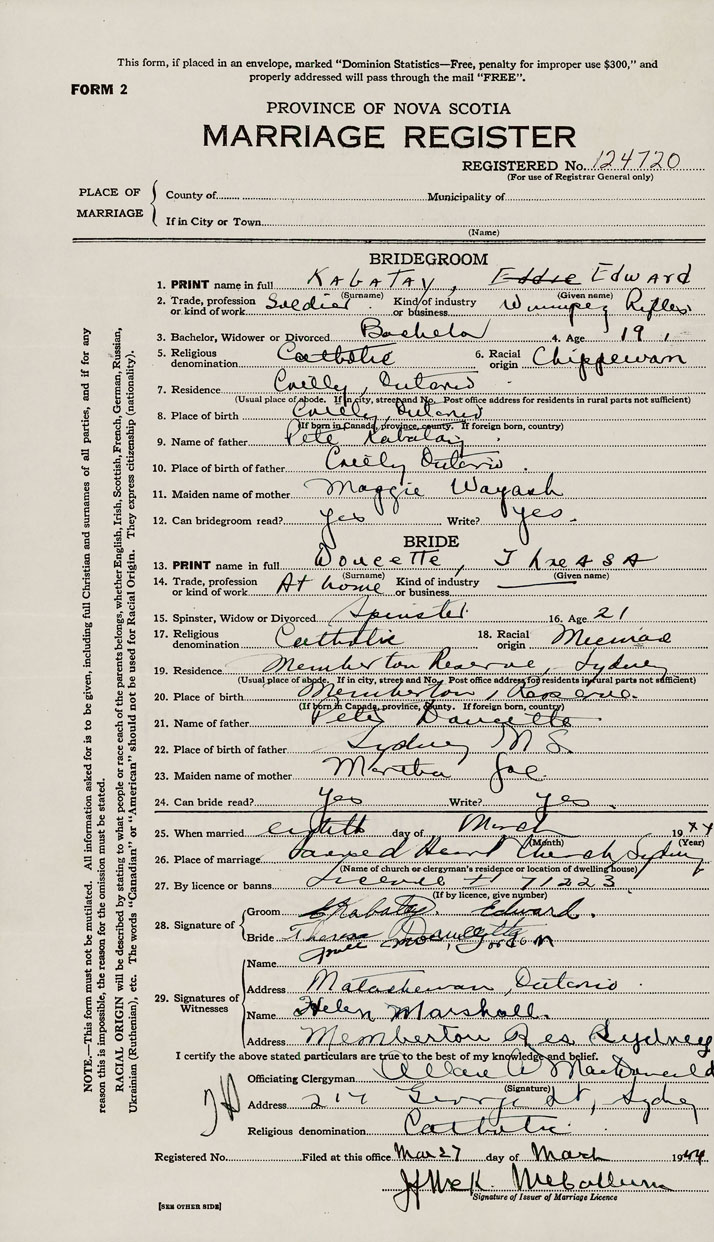 This form, if placed in an envelope, marked "Dominion Statistics—Free, penalty for improper use $300," and
properly addressed will pass through the mail "FREE".
FORM 2
PROVINCE OF NOVA SCOTIA
MARRIAGE REGISTER
REGISTERED No. 124720
(For use of Registrar General only)
PLACE OF MARRIAGE
County of Municipality of
If in City or Town
(Name)
BRIDEGROOM
1. PRINT name in full KABATAY, Eddie Edward
(Surname) (Given name)
2. Trade, profession or kind of work Soldier Kind of industry or business Winnipeg Rifles
3. Bachelor, Widower or Divorced Bachelor 4. Age 19
5. Religious denomination Catholic 6. Racial origin Chippewan
7. Residence Ontario
(Usual place of abode. If in city, street and No. Post office address for residents in rural parts not sufficient)
8. Place of birth Ontario
(If born in Canada, province, county. If foreign born, country)
9. Name of father Pete Kabatay
10. Place of birth of father Ontario
11. Maiden name of mother Maggie Wayash
12. Can bridegroom read? yes Write? yes.
BRIDE
13. PRINT name in full Doucette, Threasa
(Surname) (Given name)
14. Trade, profession or kind of work At home Kind of industry or business
15. Spinster, Widow or Divorced Spinster 16. Age 21
17. Religious denomination Catholic 18. Racial origin Micmac
19. Residence Memberton Reserve, Sydney
(Usual place of abode. If in city, street and No. Post office address for residents in rural parts not sufficient)
20. Place of birth Memberton, Reserve.
(If born in Canada, province, county. If foreign born, country)
21. Name of father Pete Doucette
22. Place of birth of father Sydney N.S.
23. Maiden name of mother Martha Joe
24. Can bride read? Yes Write? yes.
25. When married eighth day of March 19 44
(Month) (Year)
26. Place of marriage Sacred Heart Church, Sydney
(Name of church or clergyman's residence or location of dwelling house)
27. By licence or banns Licence # 71223
(If by licence, give number)
28. Signature of
Groom Kabatay Edward.
Bride Theresa Doucette
29. Signatures of Witnesses
Name Gordon
Address Matachewan, Ontario
Name Helen Marshall.
Address Memberton Res Sydney
I certify the above stated particulars are true to the best of my knowledge and belief.
Officiating Clergyman MacDonald
(Signature)
Address 217 George St, Sydney
Religious denomination Catholic
Registered No. Filed at this office Mar 27 day of March 1944
McCallum
Signature of Issuer of Marriage Licence
[SEE OTHER SIDE]
NOTE.—This form must not be mutilated. All information asked for is to be given, including full Christian and surnames of all parties, and if for any
reason this is impossible, the reason for the omission must be stated.
RACIAL ORIGIN will be described by stating to what people or race each of the parents belongs, whether English, Irish, Scottish, French, German, Russian,
Ukrainian (Ruthenian), etc. The words "Canadian" or "American" should not be used for Racial Origin. They express citizenship (nationality).